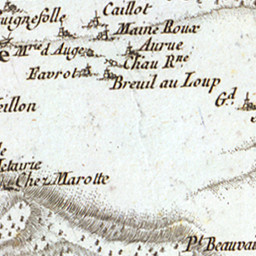 Caillot
uignefolle
Maine Roux
Mrie d'Auge
Aurue
Chau Rne
Favrot
Breuil au Loup
Gd
eillon
le
etairie
Chez Marotte
Pt Beauvai